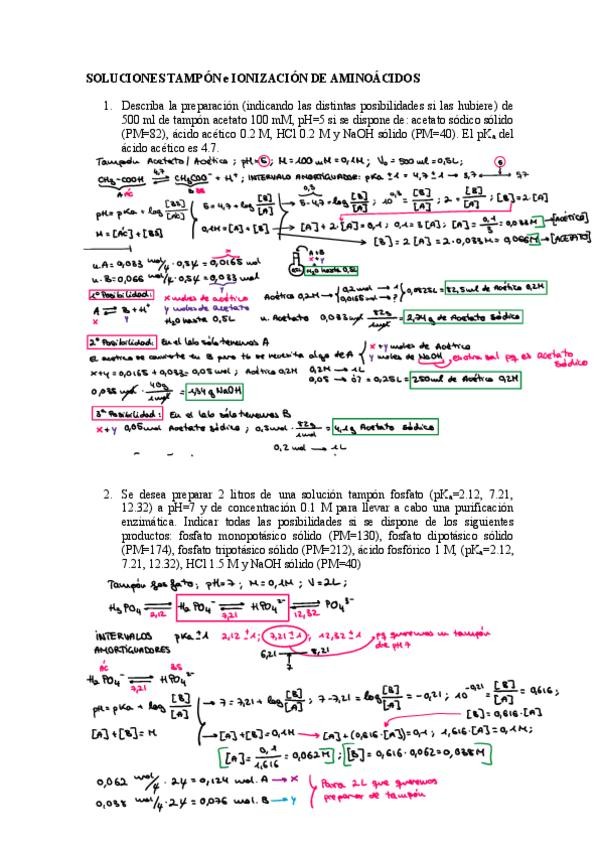 SOLUCIONES TAMPÓN e IONIZACIÓN DE AMINOÁCIDOS
1. Describa la preparación (indicando las distintas posibilidades si las hubiere) de
500 ml de tampón acetato 100 mM, pH=5 si se dispone de: acetato sódico sólido
(PM=82), ácido acético 0.2 M, HCl 0.2 M y NaOH sólido (PM=40). El pKa del
ácido acético es 4.7.
Tampón Acetato / Acético ; pH=5 ; M=100mM=0,1M ; V₀=500ml=0,5L ;
CH₃-COOH ⇌ CH₃COO⁻ + H⁺ ; INTERVALO AMORTIGUADOR: pKa ±1 = 4,7 ±1 → 3,7 5,7
4,7
5
Ac BS
pH = pKa + log [BS]/[Ac] } 5=4,7+log [B]/[A] → 5-4,7=log [B]/[A] ; 10^0,3 = [B]/[A] ; 2 = [B]/[A] ; [B]=2·[A]
0,3
M = [Ac] + [BS] 0,1M = [A] + [B] → [A] + 2[A] = 0,1 ; 0,1 = 3[A] ; [A] = 0,1/3 = 0,033M → [ACÉTICO]
[B] = 2[A] = 2·0,033M = 0,066M → [ACETATO]
n.A = 0,033 mol/L · 0,5L = 0,0165 mol
n.B = 0,066 mol/L · 0,5L = 0,033 mol
A+B
x+y
H₂O hasta 0,5L
1ª Posibilidad: x moles de acético
A ⇌ B + H⁺ y moles de acetato
x y H₂O hasta 0,5L
Acético 0,2M → 0,2mol → 1L
0,0165mol → ? } 0,0825L = 82,5ml de Acético 0,2M
n. Acetato 0,033mol · 82g/1mol = 2,74g de Acetato Sódico
2ª Posibilidad: En el lab sólo tenemos A
El acético se convierte en B pero tb se necesita algo de A { x+y moles de Acético
y moles de NaOH
es otra sal pq es acetato sódico
x+y = 0,0165 + 0,033 = 0,05 mol ; Acético 0,2M 0,2M → 1L
0,05 → ¿? = 0,25L = 250ml de Acético 0,2M
40g/1mol = 1,34g NaOH
3ª Posibilidad: En el lab sólo tenemos B
x+y 0,05mol Acetato sódico ; 82g/1mol = 4,1g Acetato Sódico
0,2 mol → 1L
2. Se desea preparar 2 litros de una solución tampón fosfato (pKa=2.12, 7.21,
12.32) a pH=7 y de concentración 0.1 M para llevar a cabo una purificación
enzimática. Indicar todas las posibilidades si se dispone de los siguientes
productos: fosfato monopotásico sólido (PM=130), fosfato dipotásico sólido
(PM=174), fosfato tripotásico sólido (PM=212), ácido fosfórico 1 M, (pKa=2.12,
7.21, 12.32), HCl 1.5 M y NaOH sólido (PM=40)
Tampón fosfato ; pH=7 ; M=0,1M ; V=2L ;
H₃PO₄ ⇌ H₂PO₄⁻ ⇌ HPO₄²⁻ ⇌ PO₄³⁻
2,12 7,21 12,32
INTERVALOS pKa ±1 2,12 ±1 ; 7,21 ±1 ; 12,32 ±1 pq queremos un tampón
AMORTIGUADORES 6,21 8,21 de pH 7
7
Ác BS
H₂PO₄⁻ ⇌ HPO₄²⁻
7,21
pH = pKa + log [BS]/[A] → 7 = 7,21 + log [B]/[A] ; 7-7,21 = log [B]/[A] = -0,21 ; 10^-0,21 = [B]/[A] = 0,616 ;
[B] = 0,616·[A]
[A] + [B] = M → [A]+[B] = 0,1M → [A] + (0,616·[A]) = 0,1 ; 1,616·[A] = 0,1M ;
[A] = 0,1/1,616 = 0,062M ; [B] = 0,616·0,062 = 0,038M
0,062 mol/L · 2L = 0,124 mol. A → x
0,038 mol/L · 2L = 0,076 mol. B → y
Para 2L que queremos
preparar de tampón